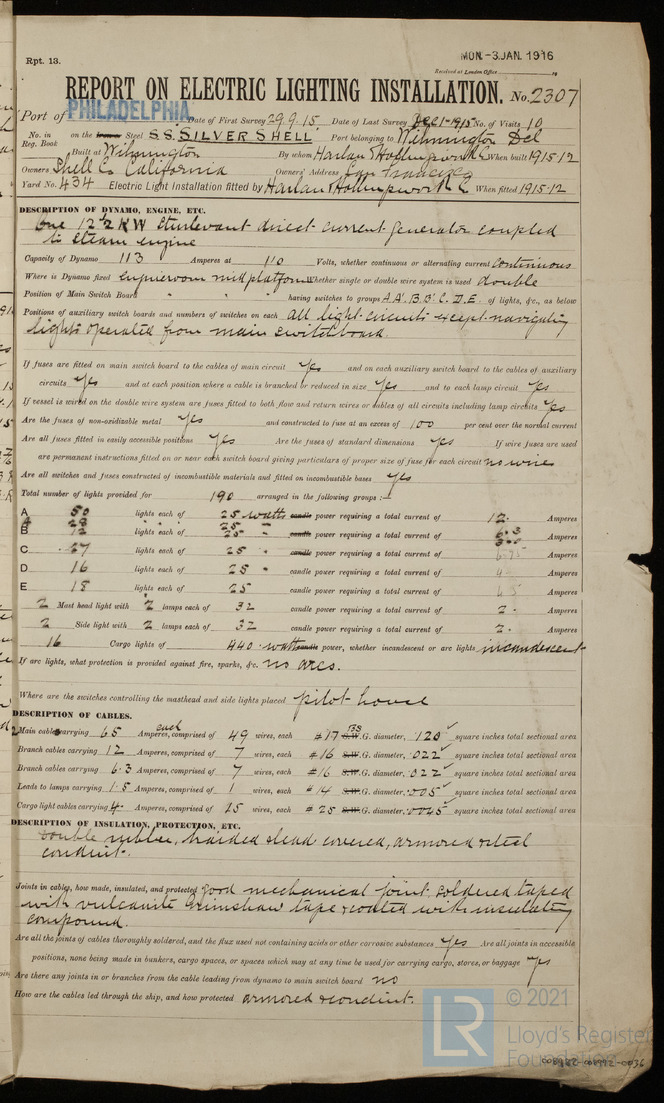 Rpt. 13.
MON - 3 JAN. 1916
Received at London Office 19
REPORT ON ELECTRIC LIGHTING INSTALLATION. No. 2307
Port of PHILADELPHIA Date of First Survey 29.9.15 Date of Last Survey Dec 1-1915 No. of Visits 10
No. in Reg. Book on the Iron Steel S.S. SILVER SHELL Port belonging to Wilmington Del
Built at Wilmington By whom Harlan & Hollingsworth C When built 1915-12
Owners Shell Co California Owners' Address San Francisco
Yard No. 434 Electric Light Installation fitted by Harlan & Hollingsworth C When fitted 1915-12
DESCRIPTION OF DYNAMO, ENGINE, ETC.
One 12½ KW Sturtevant direct current generator coupled
to steam engine
Capacity of Dynamo 113 Amperes at 110 Volts, whether continuous or alternating current continuous
Where is Dynamo fixed engineroom mid platform Whether single or double wire system is used double
Position of Main Switch Board " " " having switches to groups A.A'.B.B'.C.D.E. of lights, &c., as below
Positions of auxiliary switch boards and numbers of switches on each all light circuits except navigating
lights operated from main switchboard.
If fuses are fitted on main switch board to the cables of main circuit yes and on each auxiliary switch board to the cables of auxiliary
circuits yes and at each position where a cable is branched or reduced in size yes and to each lamp circuit yes
If vessel is wired on the double wire system are fuses fitted to both flow and return wires or cables of all circuits including lamp circuits yes
Are the fuses of non-oxidizable metal yes and constructed to fuse at an excess of 100 per cent over the normal current
Are all fuses fitted in easily accessible positions yes Are the fuses of standard dimensions yes If wire fuses are used
are permanent instructions fitted on or near each switch board giving particulars of proper size of fuse for each circuit no wire
Are all switches and fuses constructed of incombustible materials and fitted on incombustible bases yes
Total number of lights provided for 190 arranged in the following groups :—
A 50 lights each of 25 watts candle power requiring a total current of 12. Amperes
B 12 lights each of 25 " candle power requiring a total current of Amperes
C 27 lights each of 25 " candle power requiring a total current of 6.75 Amperes
D 16 lights each of 25 " candle power requiring a total current of 4. Amperes
E 18 lights each of 25 candle power requiring a total current of 4.5 Amperes
2 Mast head light with 2 lamps each of 32 candle power requiring a total current of 2. Amperes
2 Side light with 2 lamps each of 32 candle power requiring a total current of 2. Amperes
16 Cargo lights of 440 watts candle power, whether incandescent or arc lights incandescent
If arc lights, what protection is provided against fire, sparks, &c. no arcs.
Where are the switches controlling the masthead and side lights placed pilot house
DESCRIPTION OF CABLES.
2 Main cables carrying 65 Amperes, each comprised of 49 wires, each #17 BS S.W.G. diameter, .120 square inches total sectional area
Branch cables carrying 12 Amperes, comprised of 7 wires, each #16 S.W.G. diameter, .022 square inches total sectional area
Branch cables carrying 6.3 Amperes, comprised of 7 wires, each #16 S.W.G. diameter, .022 square inches total sectional area
Leads to lamps carrying 1.5 Amperes, comprised of 1 wires, each #14 S.W.G. diameter, .005 square inches total sectional area
Cargo light cables carrying 4. Amperes, comprised of 15 wires, each #25 S.W.G. diameter, .0045 square inches total sectional area
DESCRIPTION OF INSULATION, PROTECTION, ETC.
double rubber, braided & lead covered, armored & steel
conduit.
Joints in cables, how made, insulated, and protected good mechanical joint, soldered taped
with vulcanite Grimshaw tape & coated with insulating
compound.
Are all the joints of cables thoroughly soldered, and the flux used not containing acids or other corrosive substances yes Are all joints in accessible
positions, none being made in bunkers, cargo spaces, or spaces which may at any time be used for carrying cargo, stores, or baggage yes
Are there any joints in or branches from the cable leading from dynamo to main switch board no
How are the cables led through the ship, and how protected armored & conduit.
LR © 2021
Lloyd's Register
Foundation
008982-008992-0036